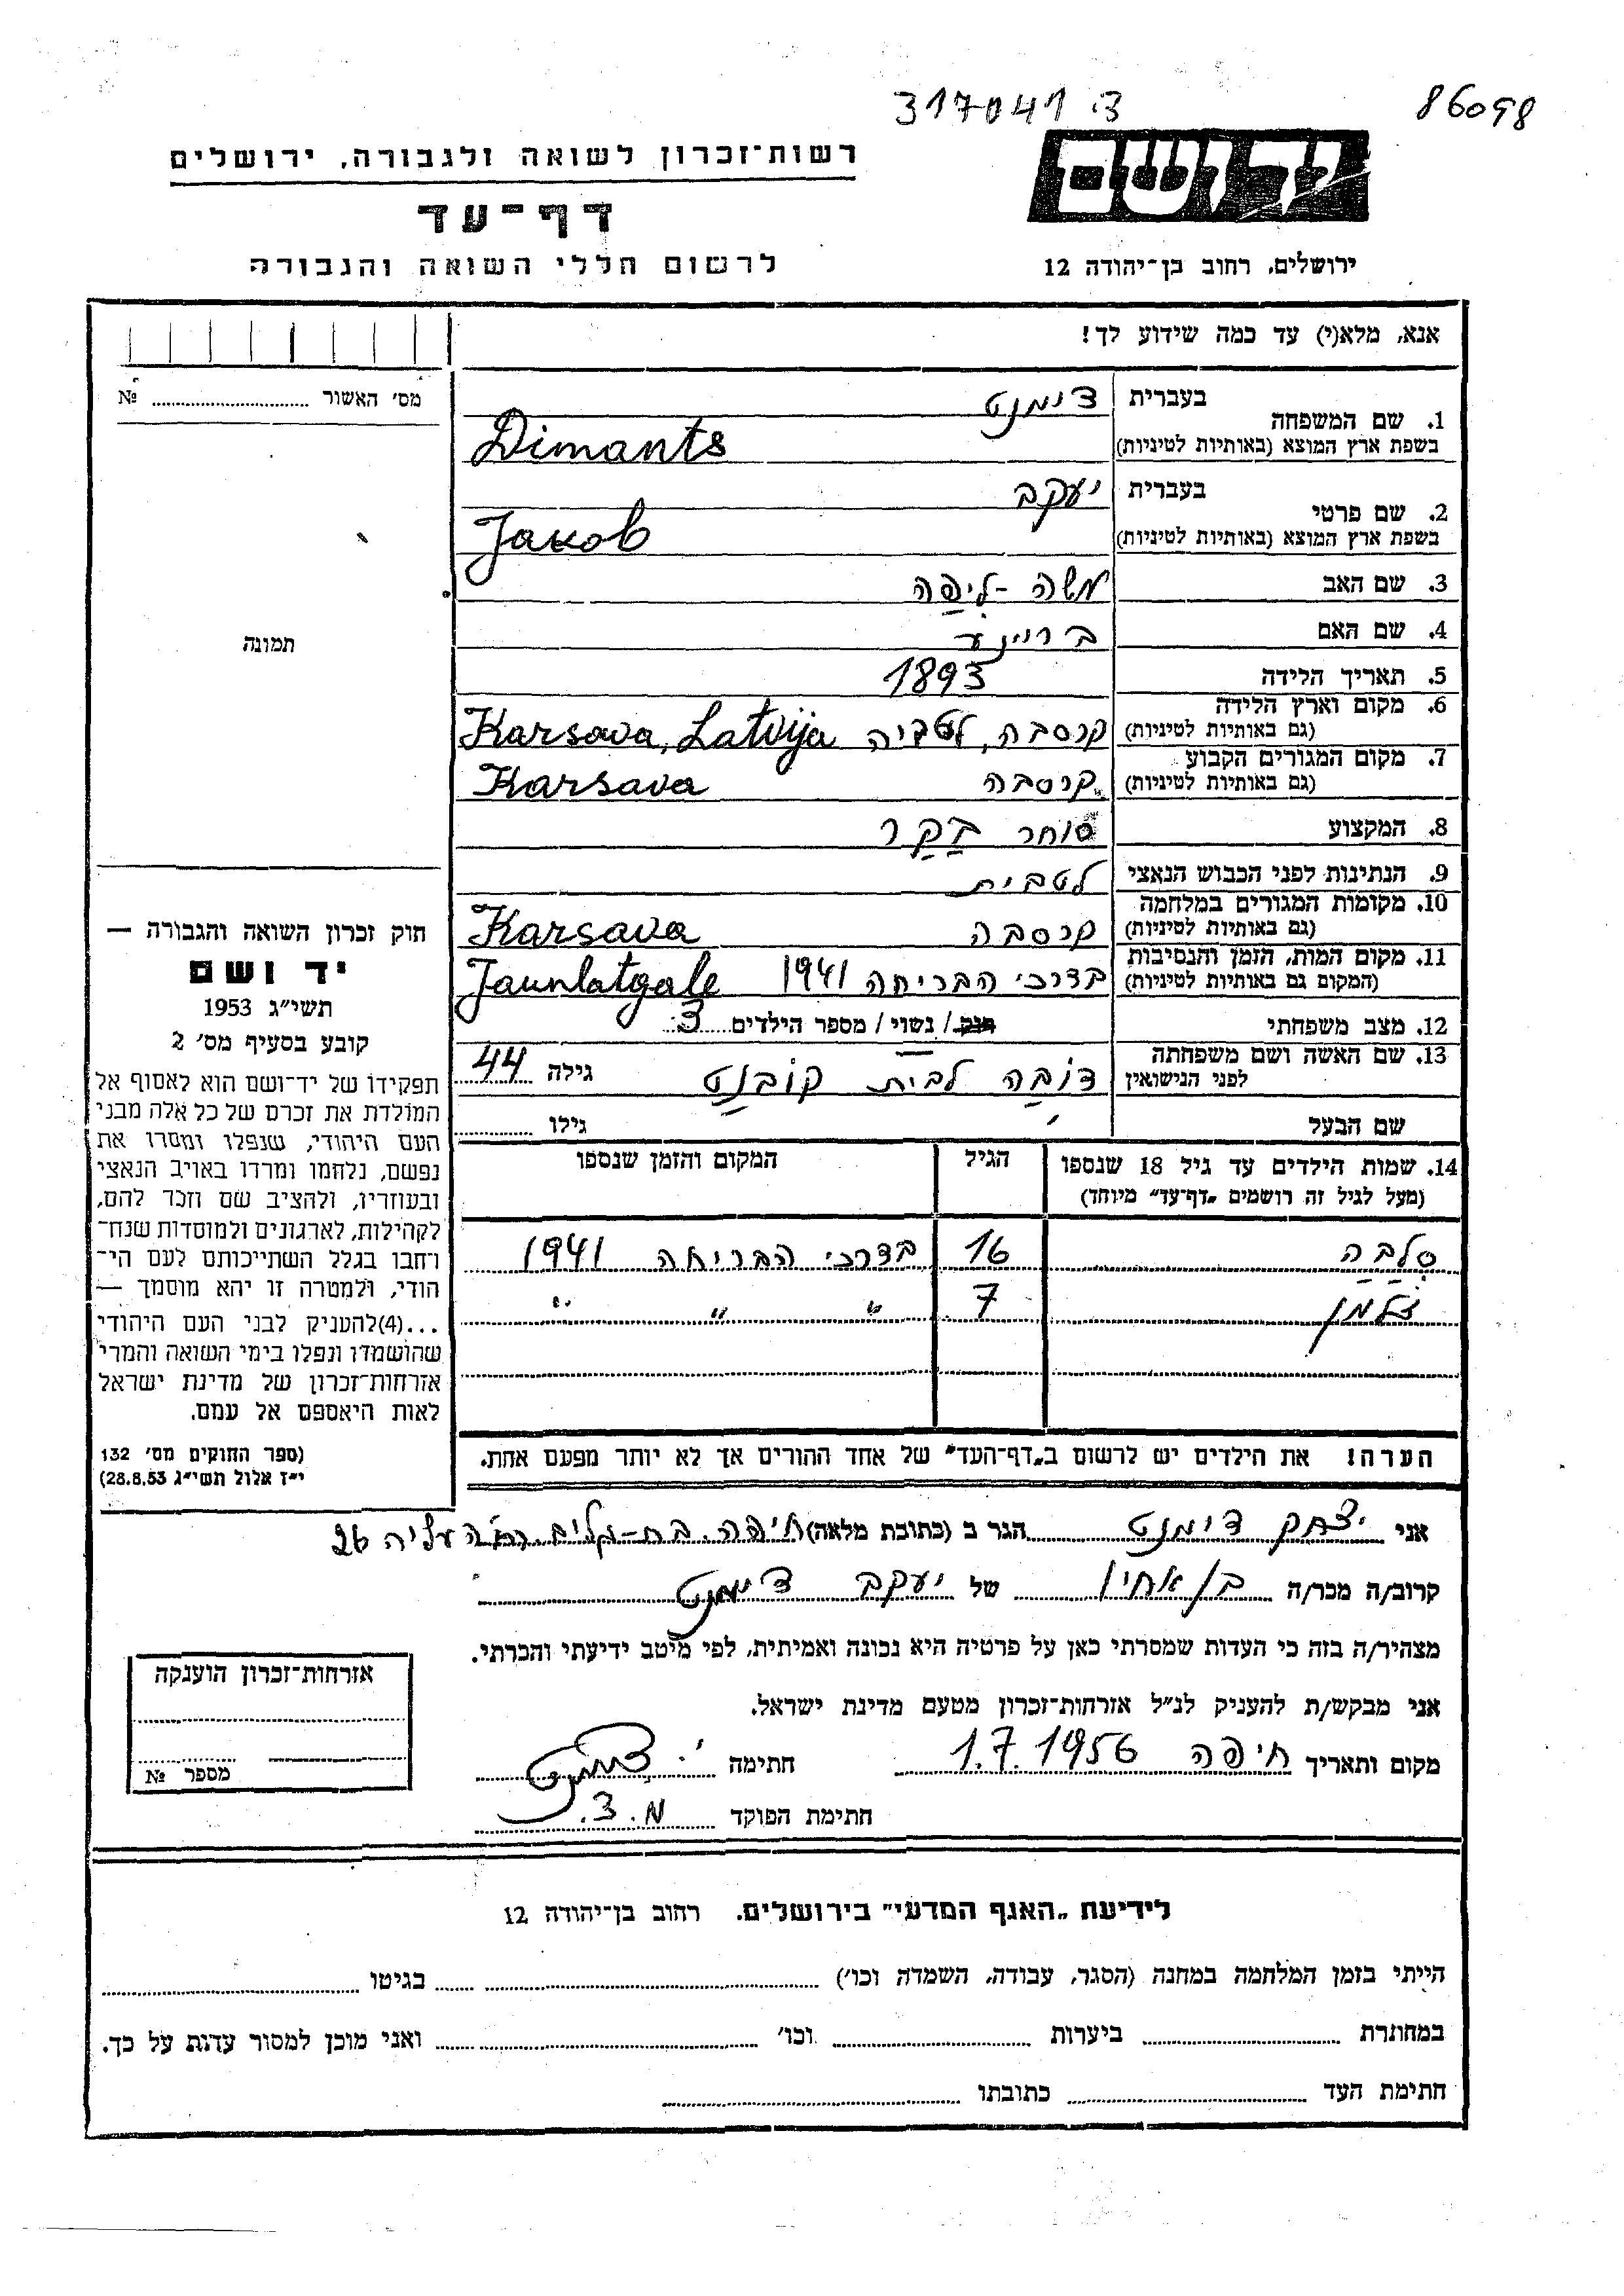 317041 .3
86098
רשות־זכרון לשואה ולגבורה, ירושלים
יד ושם
דף־עד
לרשום חללי השואה והגבורה
ירושלים, רחוב בן־יהודה 12
אנא, מלא(י) עד כמה שידוע לך!
מס׳ האשור № 
1. שם המשפחה בעברית דימנט
בשפת ארץ המוצא (באותיות לטיניות) Dimants
2. שם פרטי בעברית יעקב
בשפת ארץ המוצא (באותיות לטיניות) Jakob
3. שם האב משה - ליפה
4. שם האם
5. תאריך הלידה 1893
6. מקום וארץ הלידה
(גם באותיות לטיניות) קרסבה, לטביה Karsava, Latvija
7. מקום המגורים הקבוע
(גם באותיות לטיניות) קרסבה Karsava
8. המקצוע סוחר בקר
9. הנתינות לפני הכבוש הנאצי לטבית
10. מקומות המגורים במלחמה
(גם באותיות לטיניות) קרסבה Karsava
11. מקום המות, הזמן והנסיבות
(המקום גם באותיות לטיניות) בדרכי הבריחה 1941 Jaunlatgale
12. מצב משפחתי רווק / נשוי / מספר הילדים 3
13. שם האשה ושם משפחתה
לפני הנישואין דובה לבית קובנט גילה 44
שם הבעל גילו
14. שמות הילדים עד גיל 18 שנספו
(מעל לגיל זה רושמים „דף־עד" מיוחד)
הגיל
המקום והזמן שנספו
סלבה 16 בדרכי הבריחה 1941
זלמן 7 " " "
הערה! את הילדים יש לרשום ב„דף־העד" של אחד ההורים אך לא יותר מפעם אחת.
תמונה
חוק זכרון השואה והגבורה —
יד ושם
תשי״ג 1953
קובע בסעיף מס׳ 2
תפקידו של יד־ושם הוא לאסוף אל
המולדת את זכרם של כל אלה מבני
העם היהודי, שנפלו ומסרו את
נפשם, נלחמו ומרדו באויב הנאצי
ובעוזריו, ולהציב שם וזכר להם,
לקהילות, לארגונים ולמוסדות שנח־
רחבו בגלל השתייכותם לעם הי־
הודי, ולמטרה זו יהא מוסמך —
...(4) להעניק לבני העם היהודי
שהושמדו ונפלו בימי השואה והמרי
אזרחות־זכרון של מדינת ישראל
לאות היאספם אל עמם.
(ספר החוקים מס׳ 132
י״ז אלול תשי״ג 28.8.53)
אני יצחק דימנט הגר ב (כתובת מלאה) חיפה בת-גלים רח' העליה 26
קרוב/ה מכר/ה בן אחיו של יעקב דימנט
מצהיר/ה בזה כי העדות שמסרתי כאן על פרטיה היא נכונה ואמיתית, לפי מיטב ידיעתי והכרתי.
אני מבקש/ת להעניק לנ״ל אזרחות־זכרון מטעם מדינת ישראל.
מקום ותאריך חיפה 1.7.1956 חתימה י. דימנט
חתימת הפוקד מ. צ.
אזרחות־זכרון הוענקה
מספר №
לידיעת „האגף המדעי" בירושלים, רחוב בן־יהודה 12
הייתי בזמן המלחמה במחנה (הסגר, עבודה, השמדה וכו׳) בגיטו
במחתרת ביערות וכו׳ ואני מוכן למסור עדות על כך.
חתימת העד כתובתו